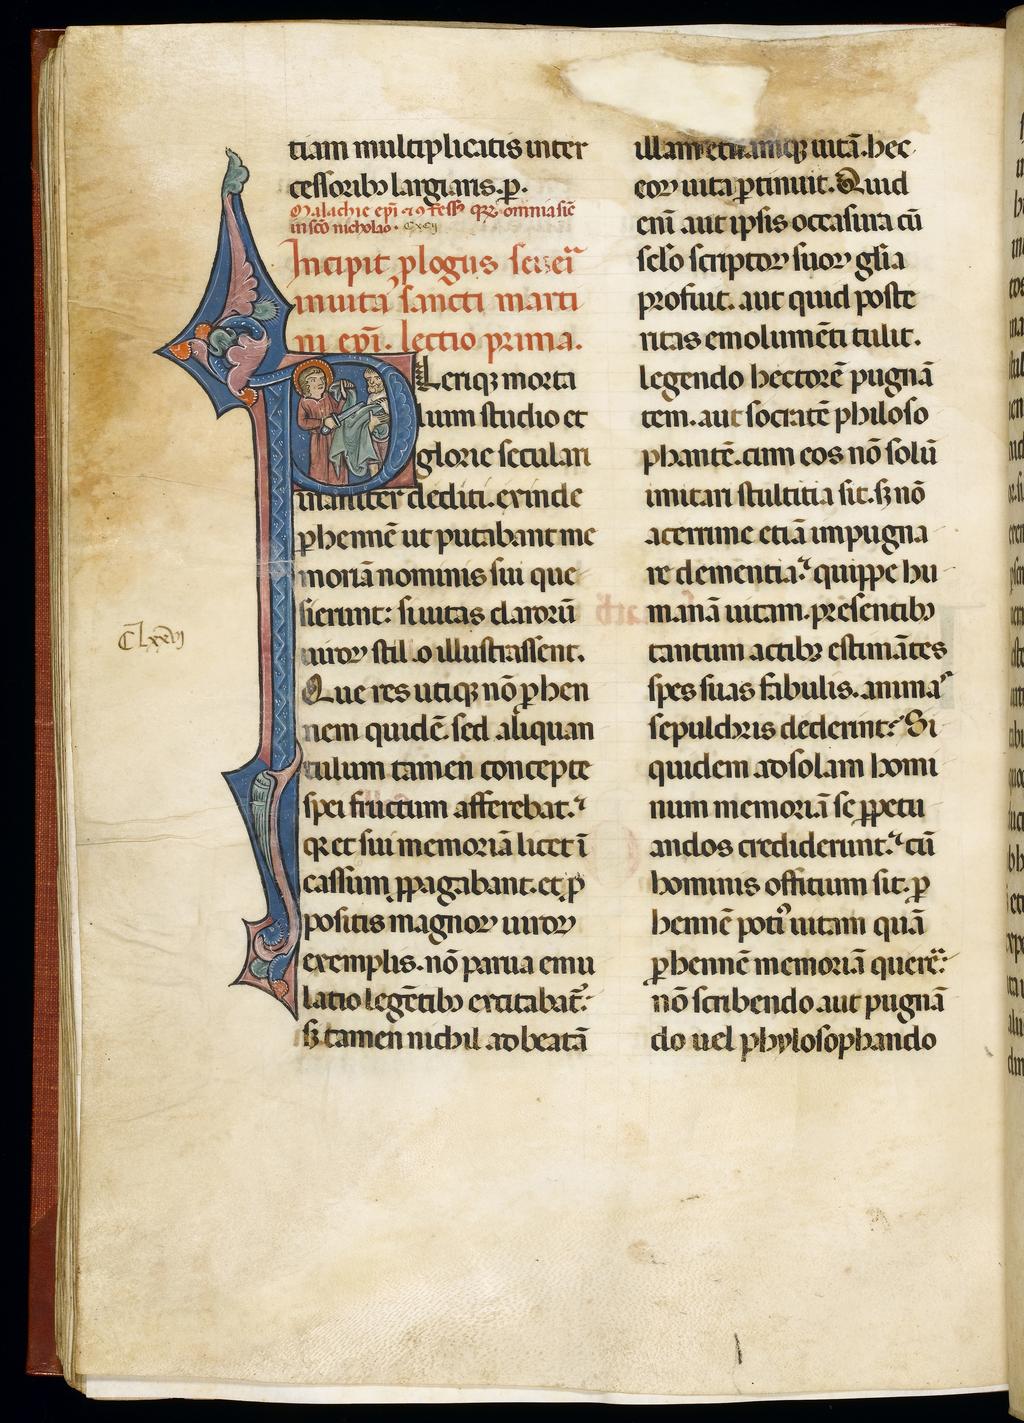 tiam multiplicatis inter
cessoribꝫ largiaris. p.
Malachie ep̄i ⁊ ↄfess̄ qr̄ omnia sic̄
in sc̄o nicholao.
Incipit ꝓlogus seueri
in uita sancti marti
ni ep̄i. lectio prima.
Leriqꝫ morta
lium studio et
glorie seculari
inaniter dediti. exinde
ꝑhennē ut putabant me
moriā nominis sui que
sierunt: si uitas clarorū
uiroꝝ stilo illustrassent.
Que res utiqꝫ nō ꝑhen
nem quidē sed aliquan
tulum tamen concepte
spei fructum afferebat.
qꝛ et sui memoriā licet ī
cassum ꝓpagabant. et ꝓ
positis magnoꝝ uiroꝝ
exemplis. nō parua emu
latio legētibꝫ excitabat̄:
sꝫ tamen nichil ad beatā
illam eternamqꝫ uitā. hec
eoꝝ uita ꝑtinuit. Quid
eni aut ipsis occasura cū
sclo scriptoꝝ suoꝝ glīa
profuit. aut quid poste
ritas emolumēti tulit.
legendo hectorē pugnā
tem. aut socratē philoso
phantē. cum eos nō solū
imitari stultitia sit. sꝫ nō
acerrime etiā impugna
re dementia: quippe hu
manā uitam. presentibꝫ
tantum actibꝫ estimātes
spes suas fabulis. animas
sepulchris dederint: Si
quidem ad solam homi
num memoriā se ꝑpetu
andos crediderunt: cū
hominis offitium sit. ꝑ
hennē potiꝰ uitam quā
ꝑhennē memoriā querē:
nō scribendo aut pugnā
do uel phylosophando
Clxxvi